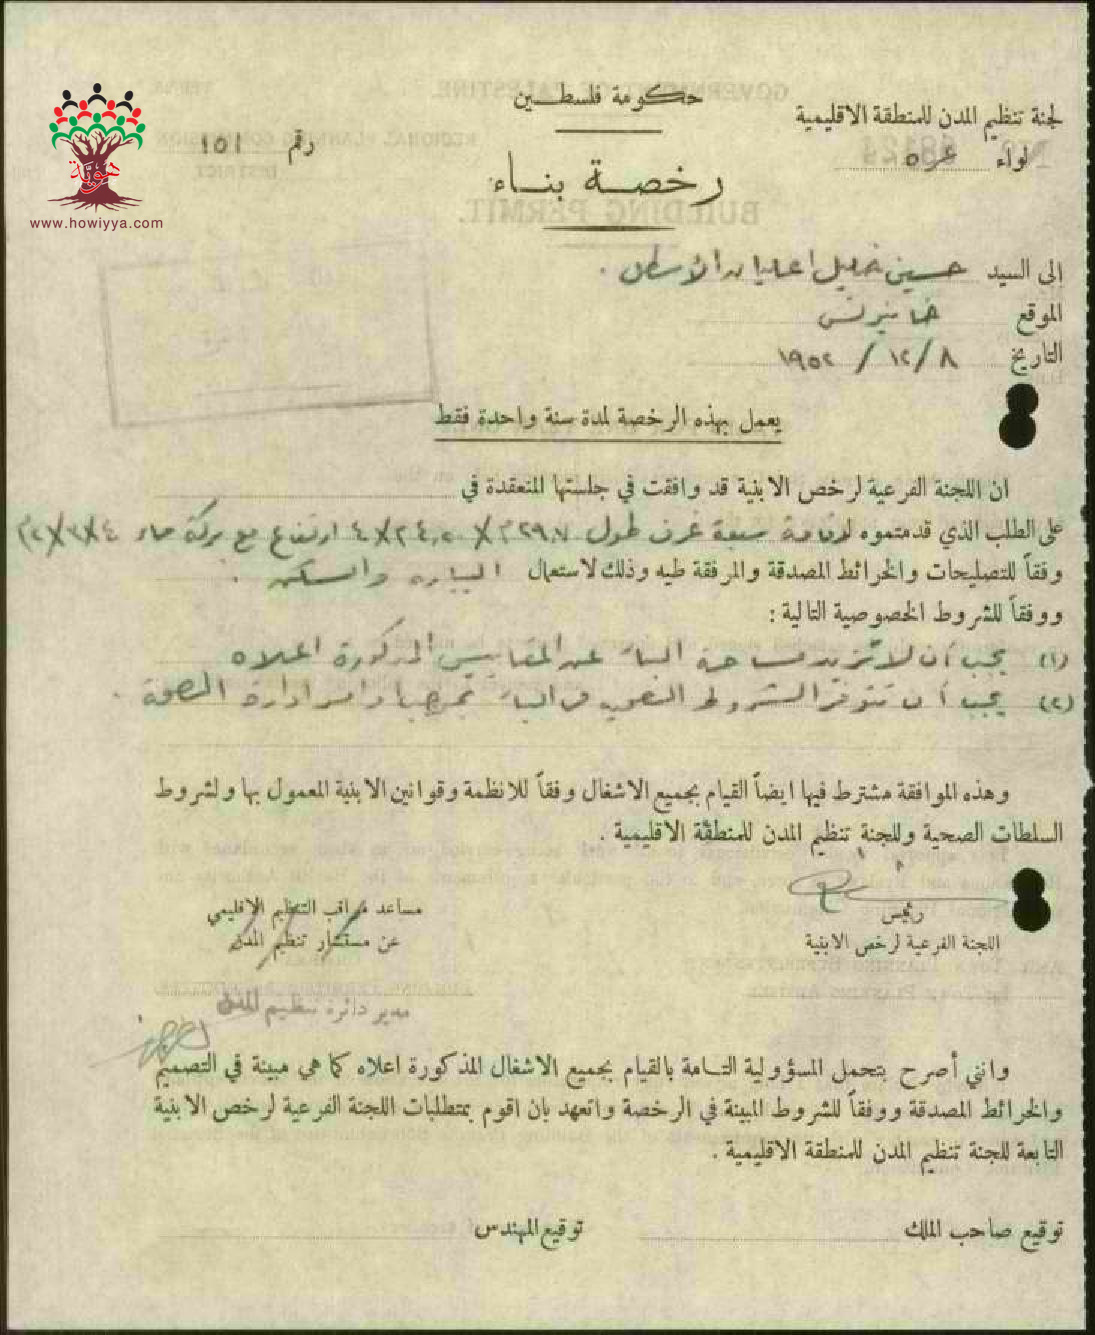 حكومة فلسطين
لجنة تنظيم المدن للمنطقة الاقليمية
لواء غزة
رقم ١٥١
هوية
www.howiyya.com
رخصة بناء
الى السيد حسين خليل اعليان الأسطل .
الموقع خانيونس
التاريخ ٨ / ١٢ / ١٩٥٢
يعمل بهذه الرخصة لمدة سنة واحدة فقط
ان اللجنة الفرعية لرخص الابنية قد وافقت في جلستها المنعقدة في
على الطلب الذي قدمتموه لاقامة سبعة غرف طول ارتفاع مع بركة ماء
وفقاً للتصليحات والخرائط المصدقة والمرفقة طيه وذلك لاستعمال البيارة والسكن .
ووفقاً للشروط الخصوصية التالية :
(١) يجب أن لا تزيد مساحة البناء عن المقاييس المذكورة اعلاه
(٢) يجب أن تتوفر الشروط الصحية في البناء بموجب اوامر ادارة الصحة .
وهذه الموافقة مشترط فيها ايضاً القيام بجميع الاشغال وفقاً للانظمة وقوانين الابنية المعمول بها ولشروط
السلطات الصحية وللجنة تنظيم المدن للمنطقة الاقليمية .
رئيس
اللجنة الفرعية لرخص الابنية
مساعد مراقب التنظيم الاقليمي
عن مستشار تنظيم المدن
مدير دائرة تنظيم المدن
وانني أصرح بتحمل المسؤولية التامة بالقيام بجميع الاشغال المذكورة اعلاه كما هي مبينة في التصميم
والخرائط المصدقة ووفقاً للشروط المبينة في الرخصة واتعهد بان اقوم بمتطلبات اللجنة الفرعية لرخص الابنية
التابعة للجنة تنظيم المدن للمنطقة الاقليمية .
توقيع صاحب الملك
توقيع المهندس